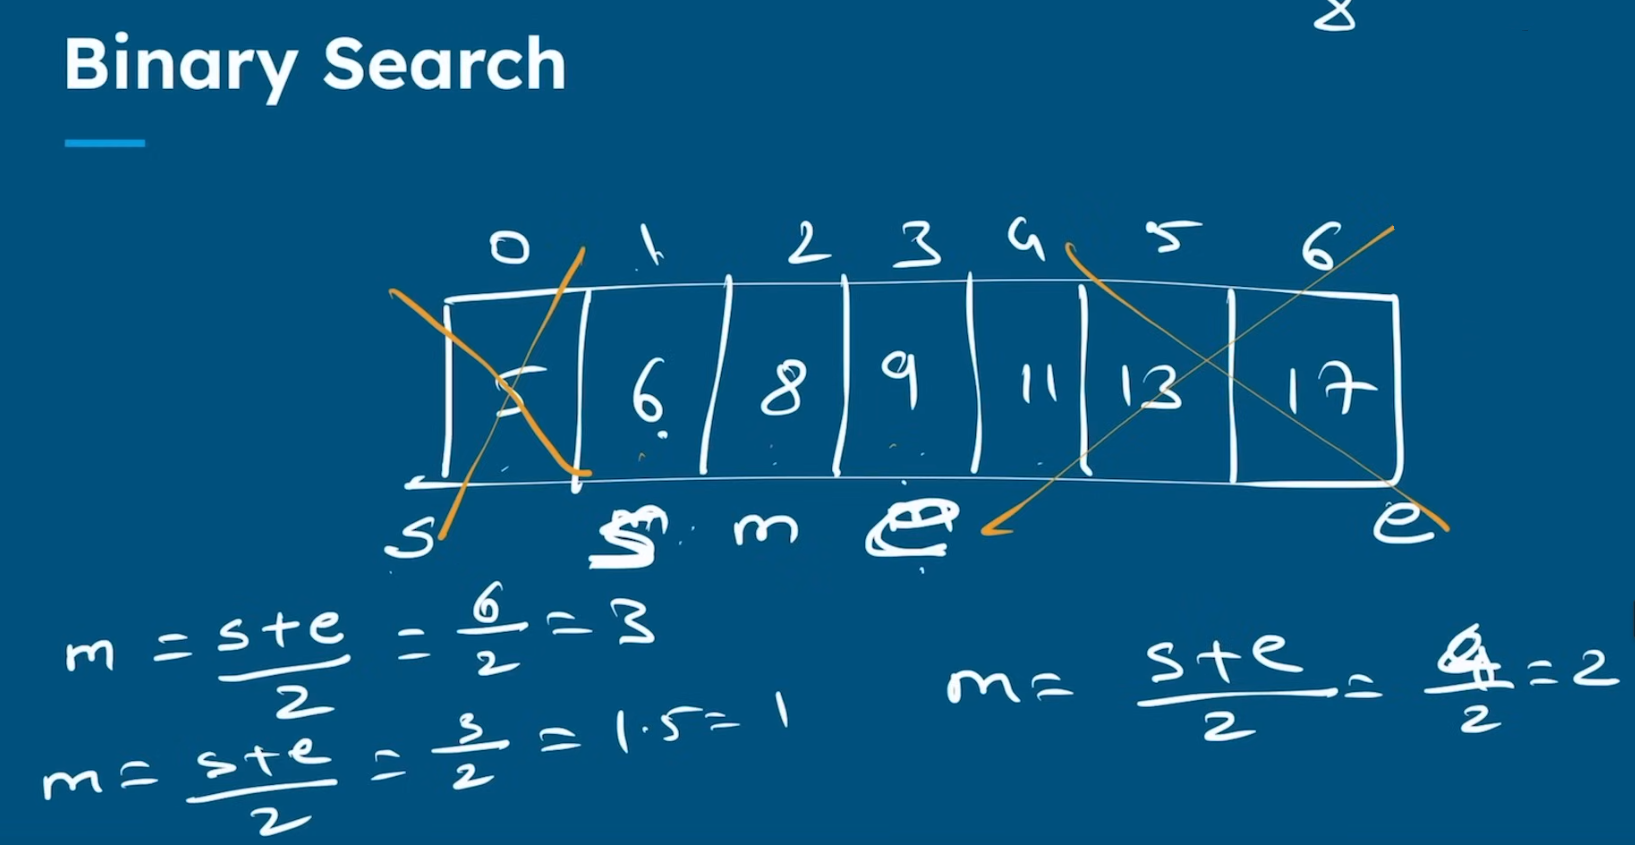 8
Binary Search
0 1 2 3 4 5 6
5 6 8 9 11 13 17
s s m e e
m = s+e/2 = 6/2 = 3
m = s+e/2 = 4/2 = 2
m = s+e/2 = 3/2 = 1.5 = 1